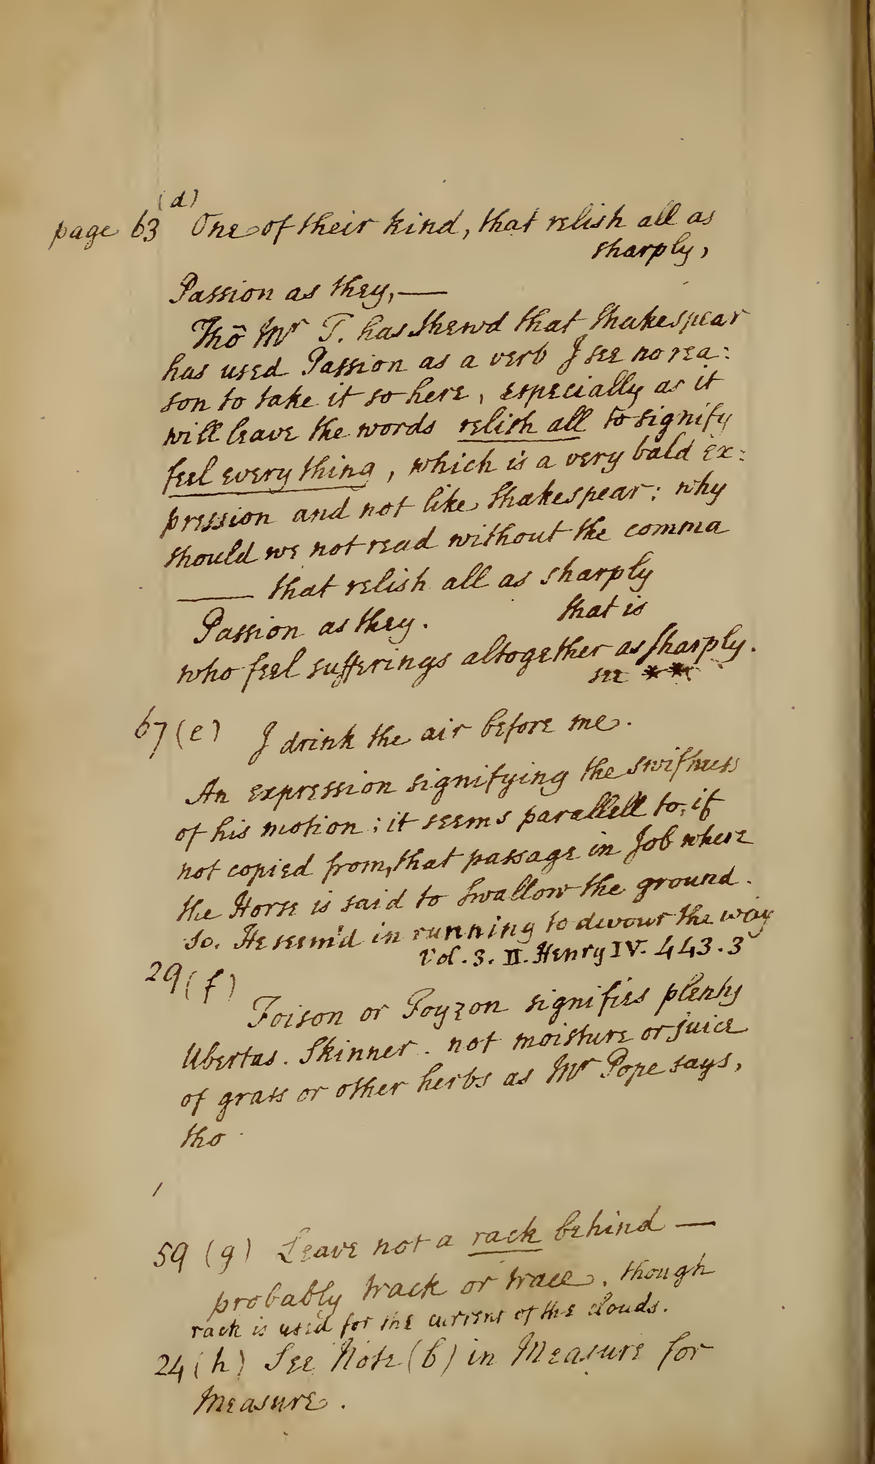 (d)
page 63 One of their kind, that relish all as
sharply,
Passion as they, —
Thō Mr T. has shewd that Shakespear
has used Passion as a verb I see no rea:
son to take it so here, especially as it
will leave the words relish all to signify
feel every thing, which is a very bald ex:
pression and not like Shakespear: why
should we not read without the comma
—— that relish all as sharply
Passion as they. that is
who feel sufferings altogether as sharply.
**
67 (e) I drink the air before me.
An expression signifying the swiftness
of his motion; it seems parallell to, if
not copied from, that passage in Job where
the Horse is said to swallow the ground.
So. He seem'd in running to devour the way
Vol. 3. II. Henry IV. 443.3
29 (f)
Foison or Foyzon signifies plenty
Ubertas. Skinner. not moisture or juice
of grass or other herbs as Mr Pope says,
tho
59 (g) Leave not a rack behind —
probably track or trace. though
rack is used for the current of the clouds.
24 (h) See Note (b) in Measure for
Measure.